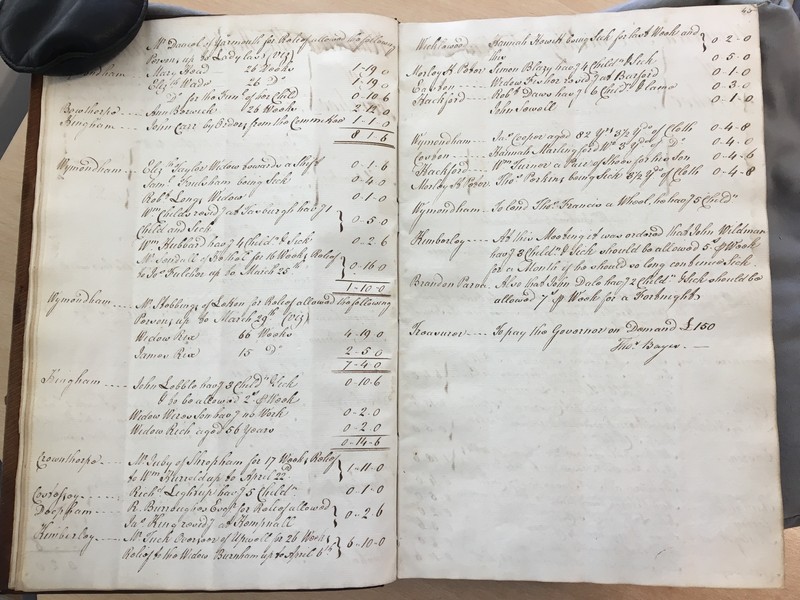 Mr Daniel of Yarmouth for Relief allowed the following
Persons up to Lady last (viz)
Wymondham Mary Goud 26 Weeks 1-19-0
Elizth Wade 26 Do 1-19-0
Do for the Funl of her Child 0-10-6
Bowthorpe Ann Berwick 26 Weeks 2-12-0
Hingham John Carr by Order from the Committee 1-1-0
8-1-6
Wymondham Eliz Taylor Widow towards a Shift 0-1-6
Saml Foulsham being Sick 0-4-0
Robt Long's Widow 0-1-0
Wm Childs resid at Tasburgh hav 1
Child and Sick 0-5-0
Wm Hubbard hav 4 Childn & Sick 0-2-6
Mr Sendall of for 16 Weeks Relief
to Jos Fulcher up to March 25th 0-16-0
1-10-0
Wymondham Mr Stebbings of for Relief allowed the following
Persons up to March 29th (viz)
Widow Rix 66 Weeks 4-19-0
James Rix 15 Do 2-5-0
7-4-0
Hingham John Lobble hav 3 Childn Sick 0-10-6
& to be allowed 2s P Week
Widow Son hav no Work 0-2-0
Widow Rich aged 56 Years 0-2-0
0-14-6
Crownthorpe Mr Juby of Shropham for 17 Weeks Relief
to Wm up to April 22d 1-11-0
Costessey Richd hav 5 Childn 0-1-0
Deopham R. Burroughes Esqr for Relief allowed
Jas King resid at Hempnall 0-2-6
Kimberley Mr Tuck Overseer of Upwell for 26 Weeks
Relief to the Widow Burnham up to April 6th 6-10-0
45
Wicklewood Hannah Howitt being Sick for last Week and
this 0-2-0
Morley St Peter Simon Blazy hav 4 Childn & Sick 0-5-0
Widow Fisher resid at Barford 0-1-0
Hackford Robt Daws hav 6 Childn & Lame 0-3-0
John Sewell 0-1-0
Wymondham Jas Cooper aged 82 Yrs 3½ Yds of Cloth 0-4-8
Coston Hannah Marling for Wm 3 Yds of Do 0-4-0
Hackford Wm Turner a Pair of Shoes for his Son 0-4-6
Morley St Peter Thos Perkins being Sick 3½ Yds of Cloth 0-4-8
Wymondham To lend Thos Francis a Wheel, he hav 5 Childn
Kimberley At this Meeting it was ordered that John Wildman
hav 3 Childn & Sick should be allowed 5s P Week
for a Month if he should so long continue Sick
Brandon Parva Also that John Dale hav 2 Childn & Sick should be
allowed 7s P Week for a Fortnight
Treasurer To pay the Governor on Demand £150
Thos Beevor